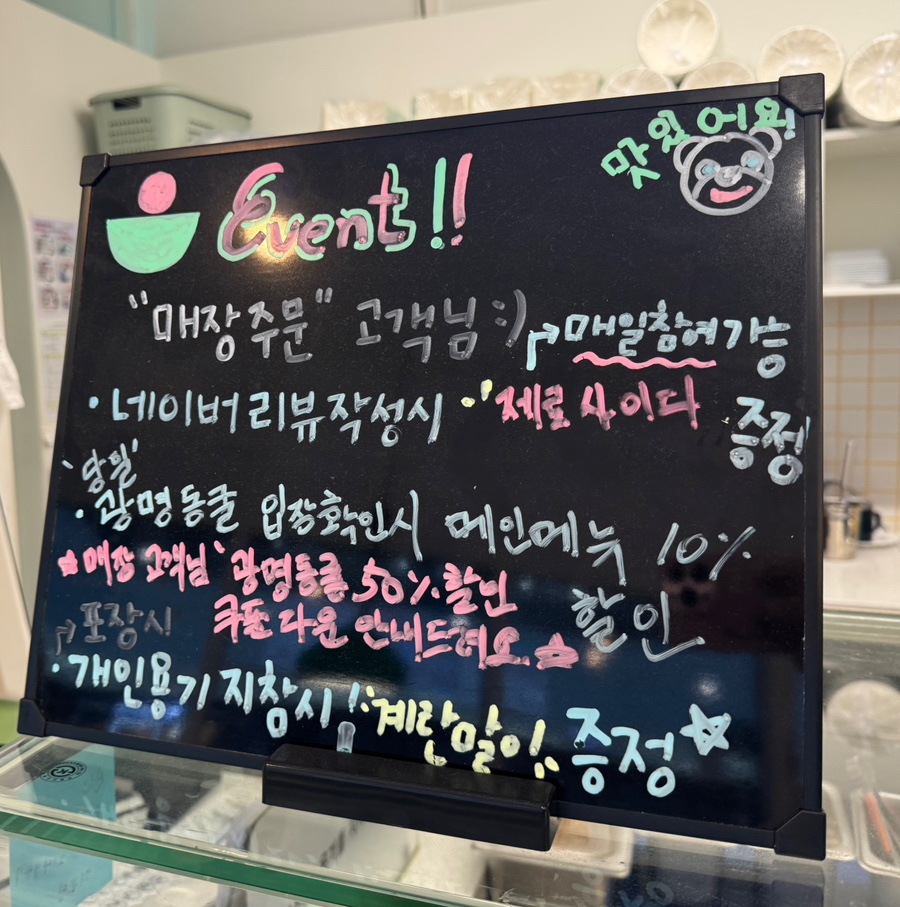 맛있어요!
Event!!
"매장주문" 고객님 :)
매일참여가능
· 네이버리뷰작성시 제로사이다 증정
당일
· 광명동굴 입장확인시 메인메뉴 10% 할인
★매장 고객님 광명동굴 50% 할인
쿠폰 다운 안내드려요★
포장시
· 개인용기 지참시! 계란말이! 증정☆